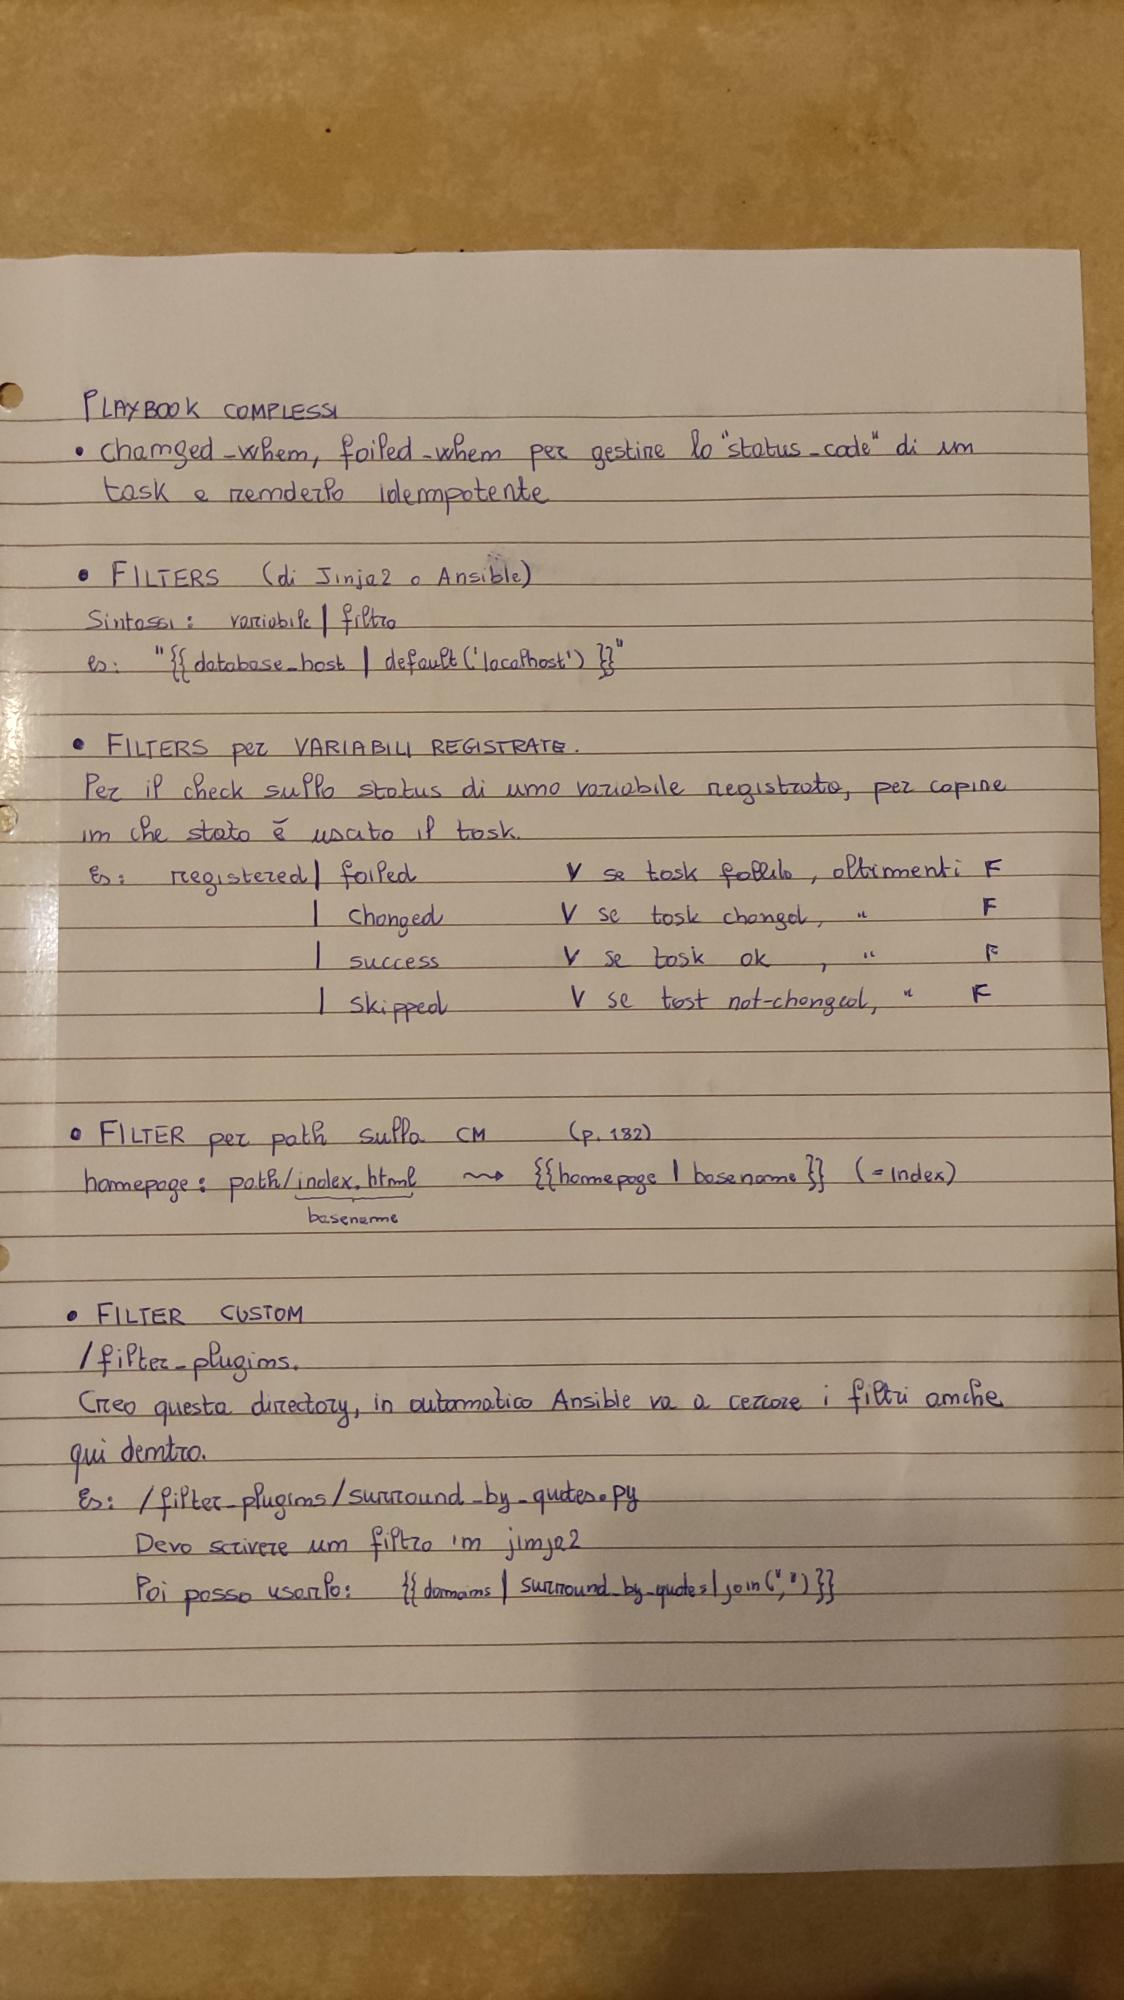 PLAYBOOK COMPLESSI
• changed_when, failed_when per gestire lo "status_code" di un
task e renderlo idempotente
• FILTERS (di Jinja2 o Ansible)
Sintassi: variabile | filtro
es: "{{ database_host | default('localhost') }}"
• FILTERS per VARIABILI REGISTRATE.
Per il check sullo status di una variabile registrata, per capire
in che stato è uscito il task.
Es: registered | failed V se task fallito, altrimenti F
| changed V se task changed, " F
| success V se task ok , " F
| skipped V se tast not-changed, " F
• FILTER per path sulla CM (p. 182)
homepage: path/index.html ⇝ {{homepage | basename}} (= index)
basename
• FILTER CUSTOM
/filter_plugins.
Creo questa directory, in automatico Ansible va a cercare i filtri anche
qui dentro.
Es: /filter_plugins/surround_by_quotes.py
Devo scrivere un filtro in jinja2
Poi posso usarlo: {{domains | surround_by_quotes | join(",")}}